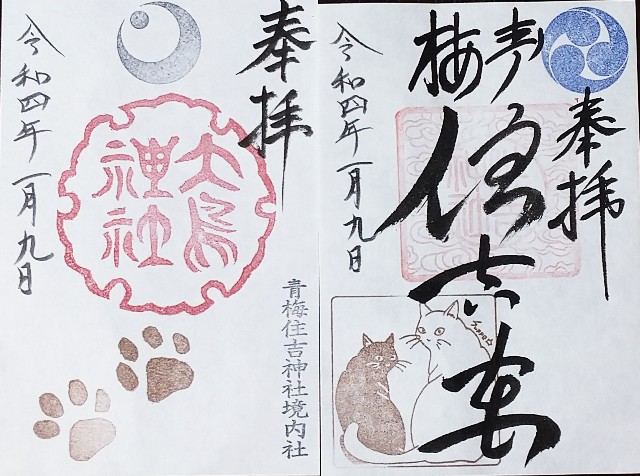 奉拝
大鳥
神社
令和四年一月九日
青梅住吉神社境内社
奉拝
青梅
住吉
令和四年一月九日